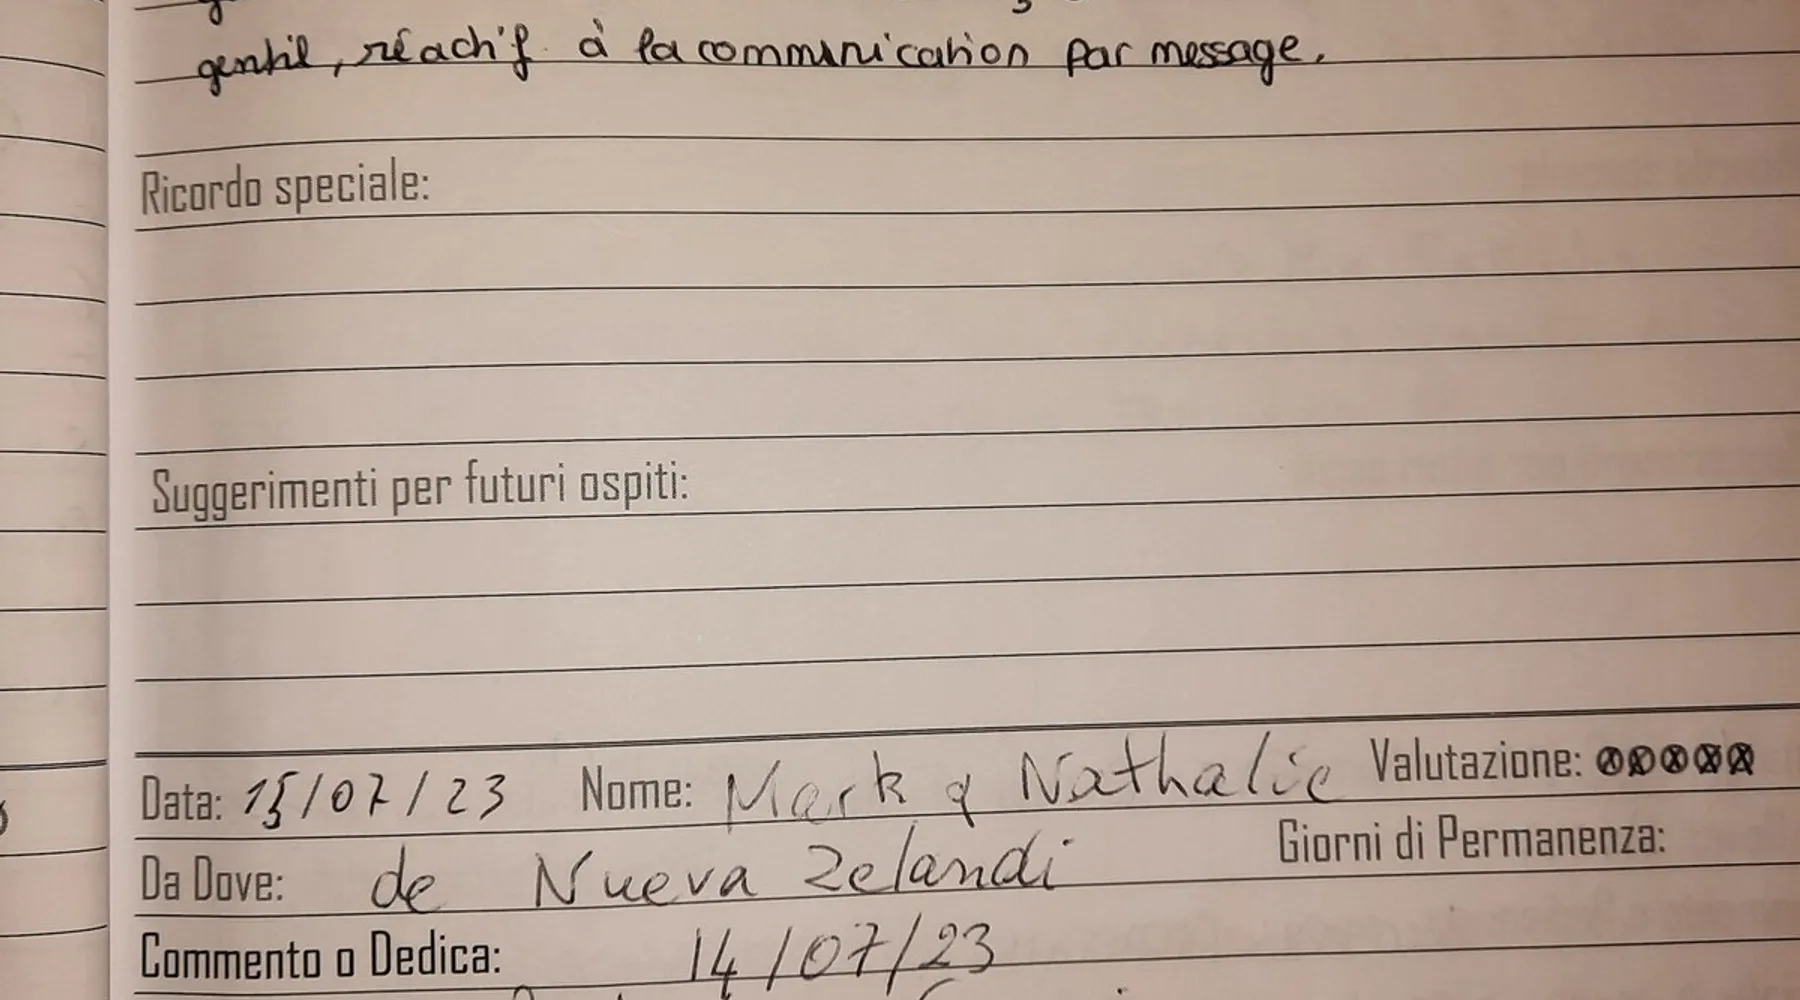 gentil, réactif à la communication par message.
Ricordo speciale:
Suggerimenti per futuri ospiti:
Data: 15/07/23 Nome: Mark & Nathalie Valutazione:
Da Dove: de Nueva Zelandi Giorni di Permanenza:
Commento o Dedica: 14/07/23